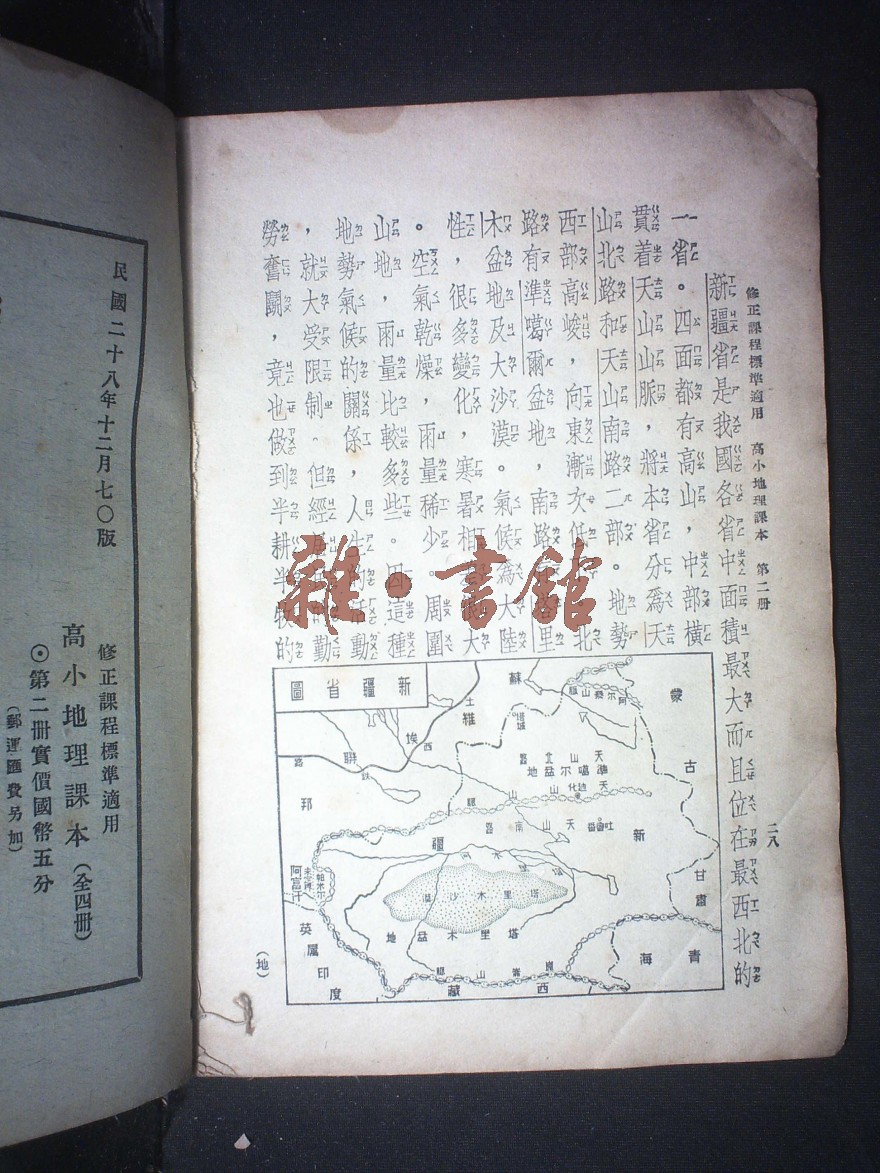 修正課程標準適用 高小地理課本 第二册
二八
新疆省是我國各省中面積最大而且位在最西北的
一省。四面都有高山,中部橫
貫着天山山脈,將本省分爲天
山北路和天山南路二部。地勢
西部高峻,向東漸次低 北
路有準噶爾盆地,南路 里
木盆地及大沙漠。氣候爲大陸
性,很多變化,寒暑相 大
。空氣乾燥,雨量稀少。周圍
山地,雨量比較多些。因這種
地勢氣候的關係,人生的活動
,就大受限制。但經 勤
勞奮鬭,竟也做到半耕半牧的
新疆省圖
蒙
古
甘肅
青海
西藏
英屬印度
阿富汗
帕米尔
蘇
維
埃
聯
邦
土
西
鉄
路
阿尔泰山脈
塔城
天山北路
準噶尔盆地
迪化
天山山脈
吐魯番
天山南路
新
疆
塔里木河
塔里木沙漠
塔里木盆地
崑崙山脈
(地)
民國二十八年十二月七〇版
修正課程標準適用
高小地理課本(全四册)
⊙第二册實價國幣五分
(郵運匯費另加)
雜·書館